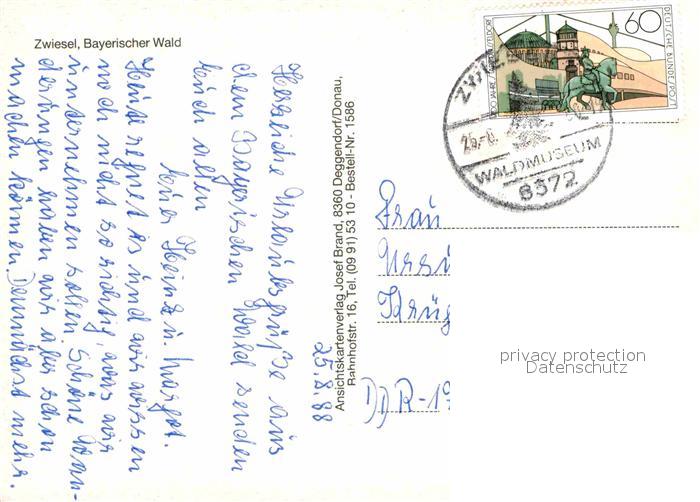 Zwiesel, Bayerischer Wald
25.8.88
Herzliche Urlaubsgrüße aus
dem Bayerischen Wald senden
Euch allen
Eure Heinz u. Margot.
Heute regnet es und wir wissen
noch nicht so richtig, was wir
unternehmen sollen. Schöne Wan-
derungen haben wir aber schon
machen können. Demnächst mehr.
Ansichtskartenverlag Josef Brand, 8360 Deggendorf/Donau,
Bahnhofstr. 16, Tel. (09 91) 53 10 - Bestell-Nr. 1586
60
DEUTSCHE BUNDESPOST
ZWIE
25.-8.
WALDMUSEUM
8372
Frau
Ursi
Krüg
DDR-19
privacy protection
Datenschutz